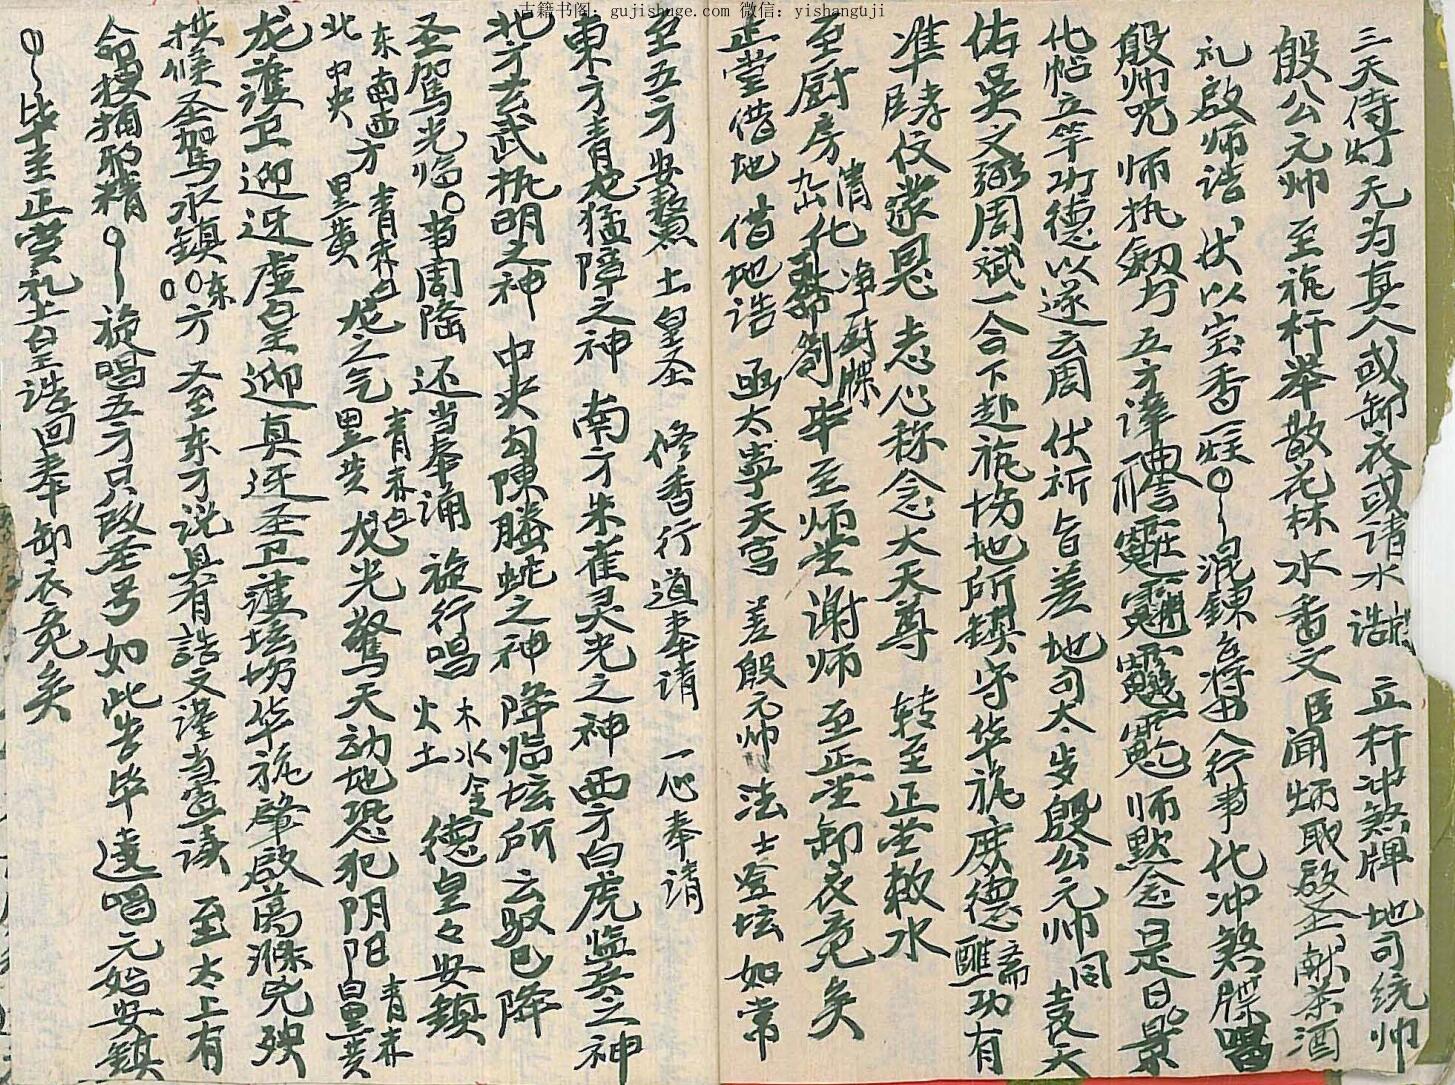 古籍书阁: gujishuge.com 微信: yishanguji
三天侍灯无为真人或卸衣或请水诰 立杆冲煞牌地司统帅
殷公元帅至旎杆举散花林水香文 臣闻炳取啟圣献茶酒
礼啟师诰伏以宝香一炷 混鍊立得由人行事化冲煞牒唱
殷师咒师执剑于五方 师默念是日景
化帖立竿功德以遂云周伏祈旨差地司太岁殷公元帅同袁天
佑吴文 周斌一合下赴旎坊地所鎮守华旎庆德斋醮功有
準 仗叢恩志心称念大天尊 转至正堂敕水
至厨房清净厨牒 毕至师堂谢师至正堂卸衣竞矣
正堂借地借地诰 函太 天宫 差殷元帅法士登坛如常
至五方安鰲土皇圣 修香行道奉请 一心奉请
東方青龙猛障之神 南方朱雀灵光之神西方白虎监兵之神
北方玄武执明之神 中央勾陳騰蛇之神降临坛所云驭已降
圣駕光临 当周隆还当奉诵 旋行唱木火水金土德皇々安鎮
东南西北中央方青赤白黑黄龙之气青赤白黑黄龙光驚天动地恐犯阴阳青赤白黑黄
龙護卫迎迓虚皇迎真迓圣卫護坛场华旎肇啟萬滌兇殃
拱候圣駕永鎮东方 又至东方说具有誥文谨当宣读 至太上有
命搜捕邪精 旋唱五方只改圣号如此告毕 遶唱元始安鎮
毕至正堂礼土皇诰回奉卸衣竞矣